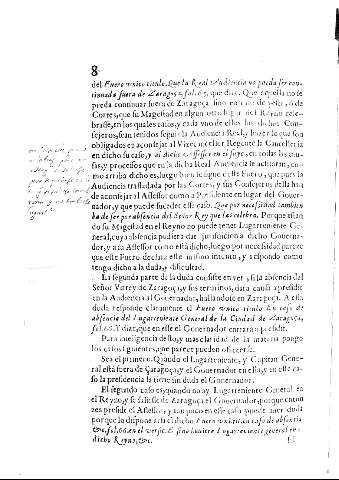 8
del Fuero unico titulo. Que la Real Audiencia no pueda ser con-
tinuada fuera de Zaragoça, fol. 65. que dize. Que aquella no se
pueda continuar fuera de Zaragoça sino en caso de peste, ò de
Cortes, que su Magestad en algun otro lugar del Reyno cele-
brasse, en los quales casos, y cada uno de ellos los dichos Con-
sejeros, sean tenidos seguir la Audiencia Real, y hazer lo que son
obligados en aconsejar al Vizecanciller Regente la Cancilleria
en dicho su caso, y al dicho Assessor en el suyo, en todas las cau-
sas, y procesos que en la dicha Real Audiencia se actitaren, co-
mo arriba dicho es, luego bien se sigue de este Fuero, que pues la
Audiencia trasladada por las Cortes, y sus Consejeros deba han
de aconsejar al Assessor como a Presidente en lugar del Gover-
nador, y que puede suceder este caso. Que por necesidad tambien
ha de ser por absencia del Señor Rey que las celebra. Porque estan
do su Magestad en el Reyno no puede tener Lugarteniente Ge-
neral, cuya absencia pudiera dar jurisdiccion a dicho Governa-
dor, y a su Assessor como está dicho, luego por necesidad parece
que este Fuero declara este mismo intento, y respondo como
tengo dicho a la duda, y dificultad.
La segunda parte de la duda consiste en ver, si la absencia del
Señor Virrey de Zaragoça, y sus terminos, dara causa a presidir
en la Audiencia al Governador, hallandose en Zaragoça. A esta
duda responde claramente el Fuero unico titulo En caso de
absencia del Lugarteniente General de la Ciudad de Zaragoça,
fol. 66. Y dize, que en este el Governador entrará a presidir.
Para inteligencia desto, y mas claridad de la materia pongo
los casos siguientes, que parece pueden ofrecerse.
Sea el primero. Quando el Lugarteniente, y Capitan Gene-
ral está fuera de Çaragoça, y el Governador en ella, y en este ca-
so la presidencia la tiene sin duda el Governador.
El segundo caso es quando no ay Lugarteniente General en
el Reyno, y se saliesse de Zaragoça el Governador, porque enton
zes preside el Assessor, y tampoco en este caso puede aver duda
porque lo dispone assi el dicho Fuero unico, tit. en caso de absencia
&c. fol. 66. en el versic. E si no huviere Lugarteniente general en
dicho Reyno, &c.
El